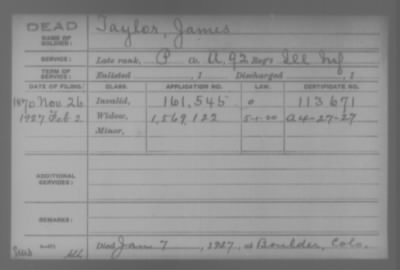 DEAD
NAME OF SOLDIER: Taylor, James
SERVICE: Late rank, P Co. A, 92 Reg't Ill Inf
TERM OF SERVICE: Enlisted , 1 Discharged , 1
DATE OF FILING: CLASS. APPLICATION NO. LAW. CERTIFICATE NO.
1870 Nov 26 Invalid, 161,545 0 113671
1927 Feb 2 Widow, 1,569,122 5-1-20 A4-27-27
Minor,
ADDITIONAL SERVICES:
REMARKS:
Died Jan 7, 1927, at Boulder, Colo.